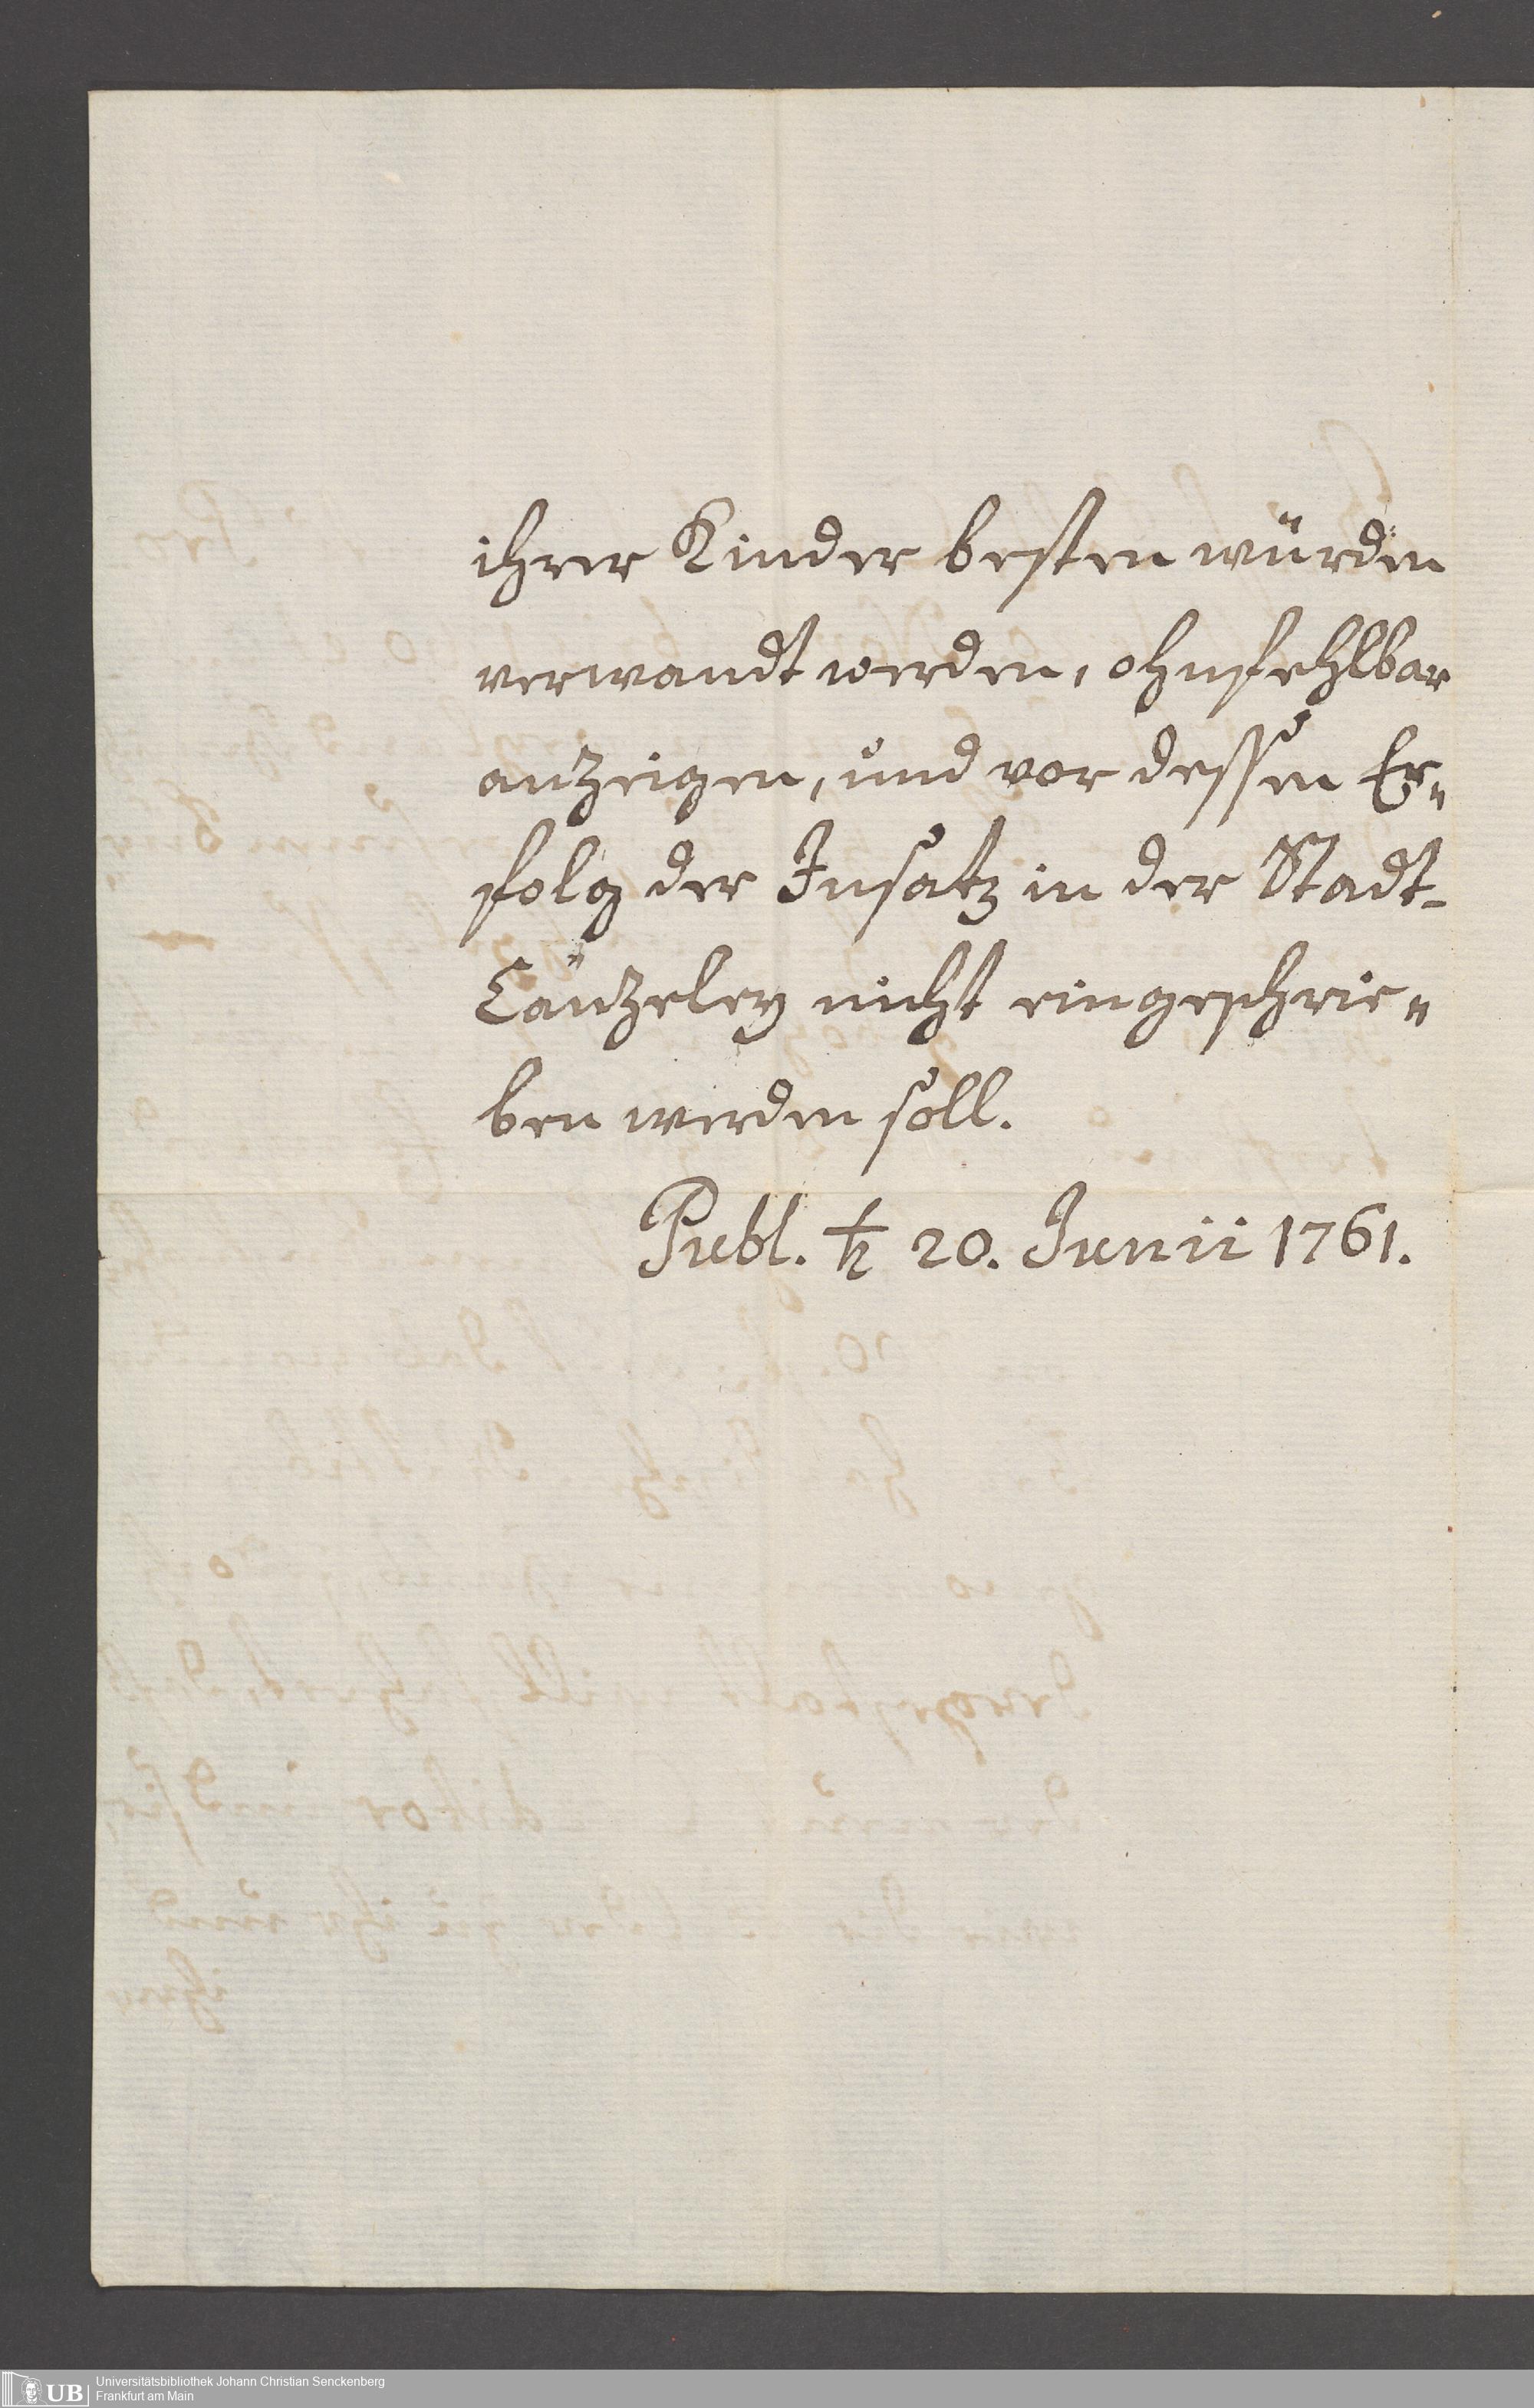 ihrer Kinder besten würden
verwandt werden, ohnfehlbar
anzeigen, und vor dessen Er„
folg der Insatz in der Stadt-
Cantzeley nicht eingeschrie„
ben werden soll.
Publ. ♄ 20. Junii 1761.
UB
Universitätsbibliothek Johann Christian Senckenberg
Frankfurt am Main